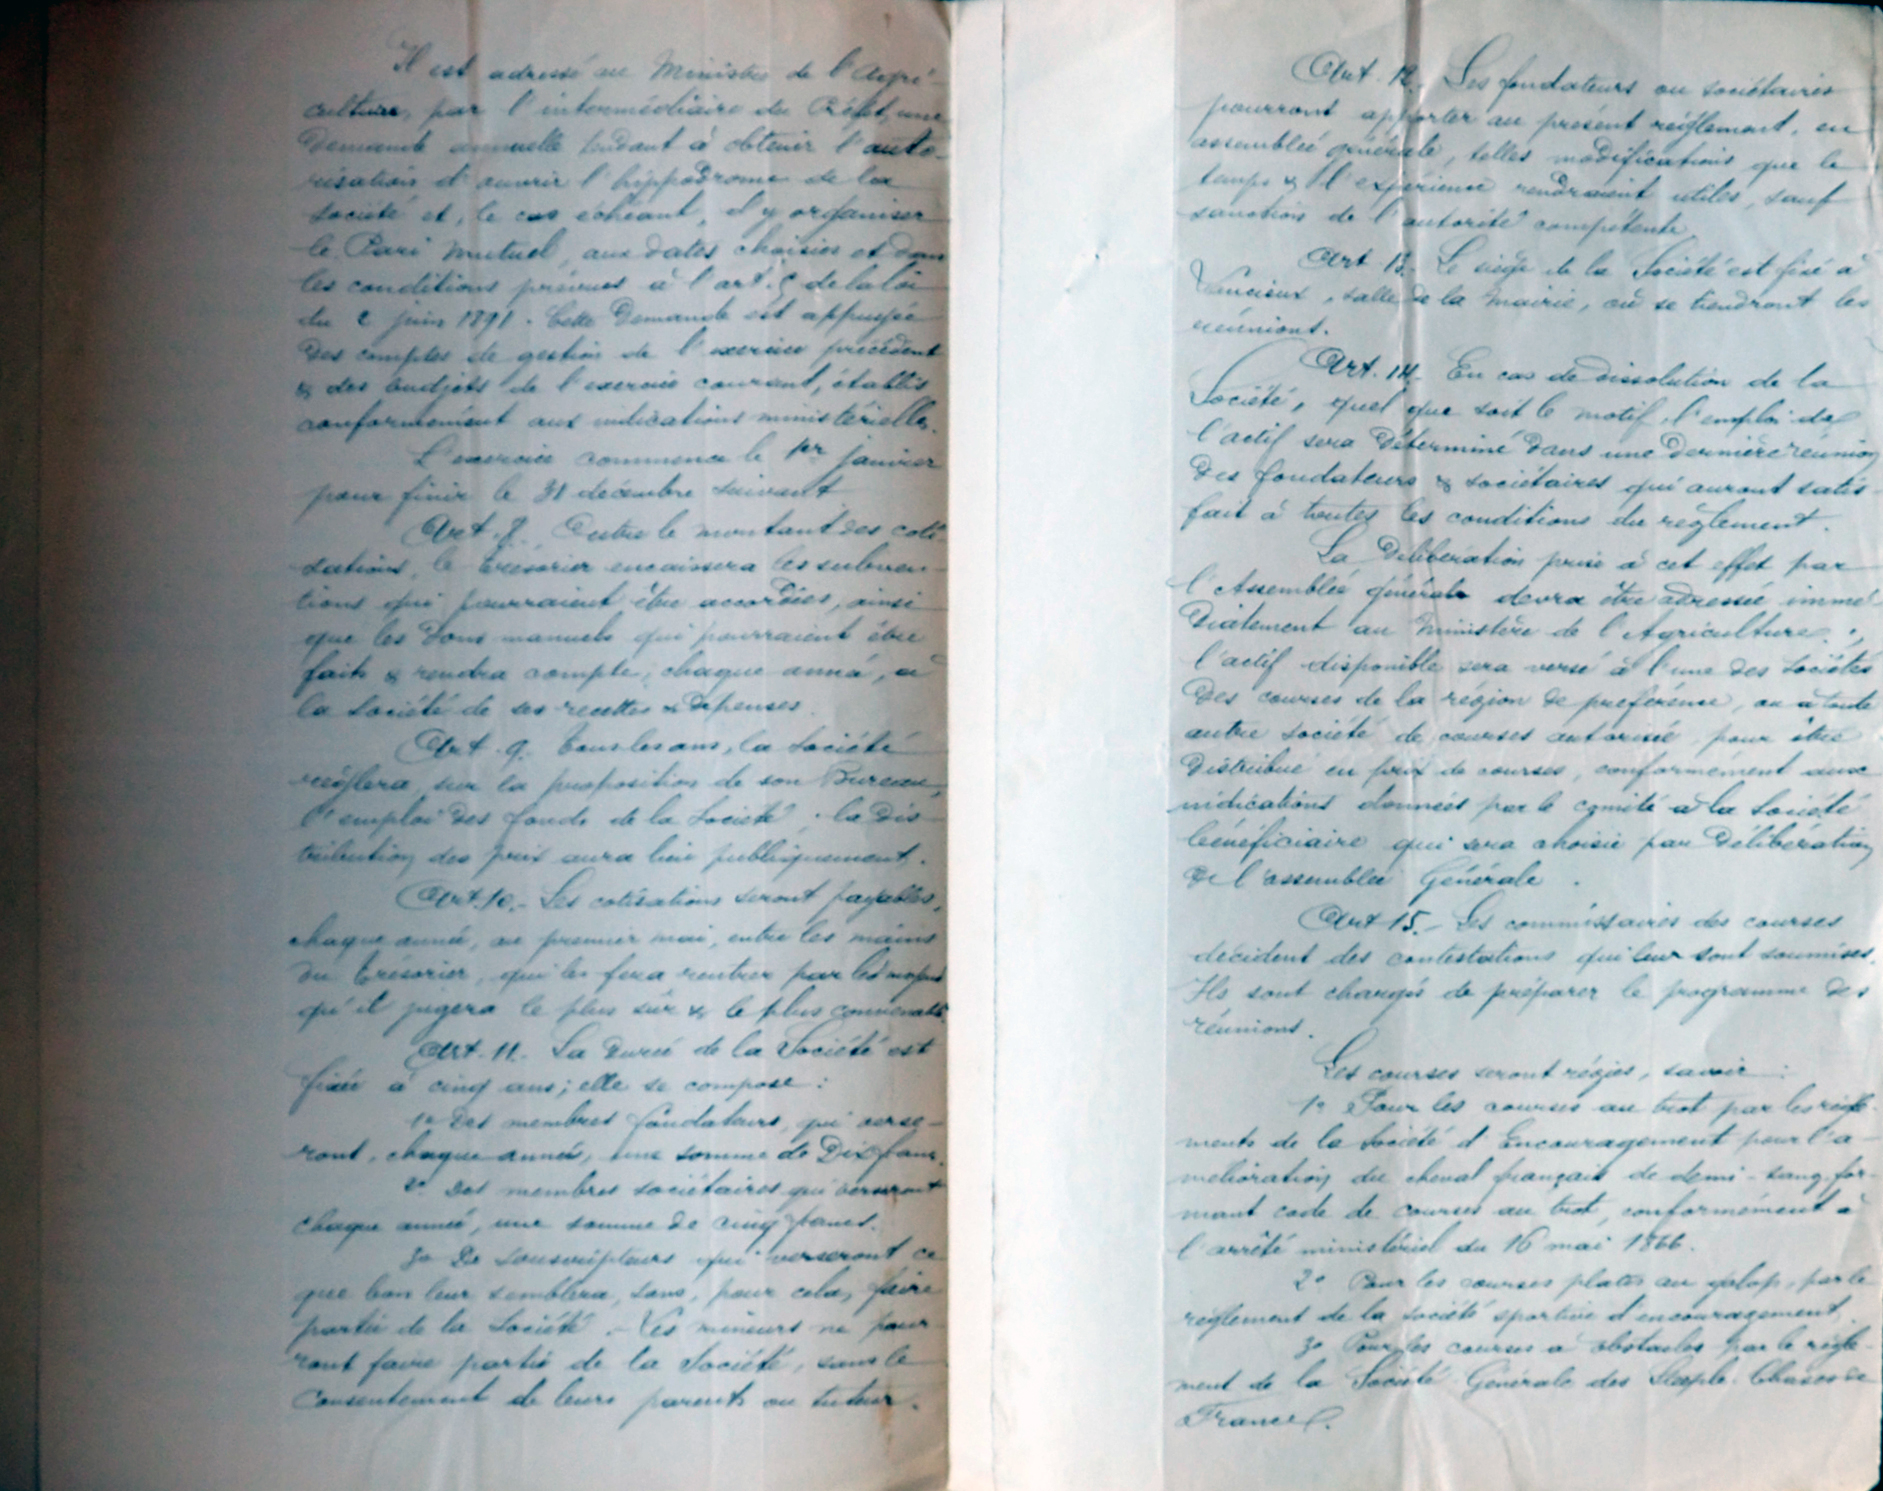 Il est adressé au Ministre de l'Agri-
culture, par l'intermédiaire du Préfet, une
demande annuelle tendant à obtenir l'auto-
risation d'ouvrir l'hippodrome de la
Société et, le cas échéant, d'y organiser
le Pari Mutuel, aux dates choisies et dans
les conditions prévues à l'art. 5 de la loi
du 2 juin 1891. Cette demande est appuyée
des comptes de gestion de l'exercice précédent
& des budjets de l'exercice courant, établis
conformément aux indications ministérielles.
L'exercice commence le 1er janvier
pour finir le 31 décembre suivant
Art. 8. Outre le montant des coti-
sations, le trésorier encaissera les subven-
tions qui pourraient être accordées, ainsi
que les dons manuels qui pourraient être
faits & rendra compte, chaque année, à
la Société de ses recettes & dépenses.
Art. 9. Tous les ans, la Société
réglera, sur la proposition de son Bureau,
l'emploi des fonds de la Société ; la dis-
tribution des prix aura lieu publiquement.
Art. 10.- Les cotisations seront payables,
chaque année, au premier mai, entre les mains
du trésorier, qui les fera rentrer par les moyens
qu'il jugera le plus sûr & le plus convenable.
Art. 11.- La durée de la Société est
fixée à cinq ans ; elle se compose :
1º Des membres fondateurs, qui verse-
ront, chaque année, une somme de Dix francs.
2º Des membres sociétaires qui verseront
chaque année, une somme de cinq francs.
3º De souscripteurs qui verseront ce
que bon leur semblera, sans, pour cela, faire
partie de la Société.- Les mineurs ne pour-
ront faire partie de la Société, sans le
Consentement de leurs parents ou tuteur.
Art. 12.- Les fondateurs ou sociétaires
pourront apporter au présent réglement, en
assemblée générale, telles modifications que le
temps & l'expérience rendraient utiles, sauf
sanction de l'autorité compétente.
Art 13.- Le siège de la Société est fixé à
Vaucieux, salle de la Mairie, où se tiendront les
réunions.
Art. 14.- En cas de dissolution de la
Société, quel que soit le motif, l'emploi de
l'actif sera déterminé dans une dernière réunion
des fondateurs & sociétaires qui auront satis-
fait à toutes les conditions du règlement.
La délibération prise à cet effet par
l'Assemblée générale devra être adressée immé-
diatement au Ministère de l'Agriculture ;
l'actif disponible sera versé à l'une des Sociétés
des courses de la région de préférence, ou à toute
autre société de courses autorisée pour être
distribué en prix de courses, conformément aux
indications données par le comité à la Société
bénéficiaire qui sera choisie par Délibération
de l'assemblée Générale.
Art 15.- Les commissaires des courses
décident des contestations qui leur sont soumises.
Ils sont chargés de préparer le programme des
réunions.
Les courses seront régies, savoir :
1º Pour les courses au trot par les régle-
ments de la Société d'Encouragement pour l'a-
mélioration du cheval français de demi-sang for-
mant code de courses au trot, conformément à
l'arrêté ministériel du 16 mai 1866.
2º Pour les courses plates au galop, par le
réglement de la société sportive d'encouragement,
3º Pour les courses à obstacles par le régle-
ment de la Société Générale des Steeple-Chases de
France.